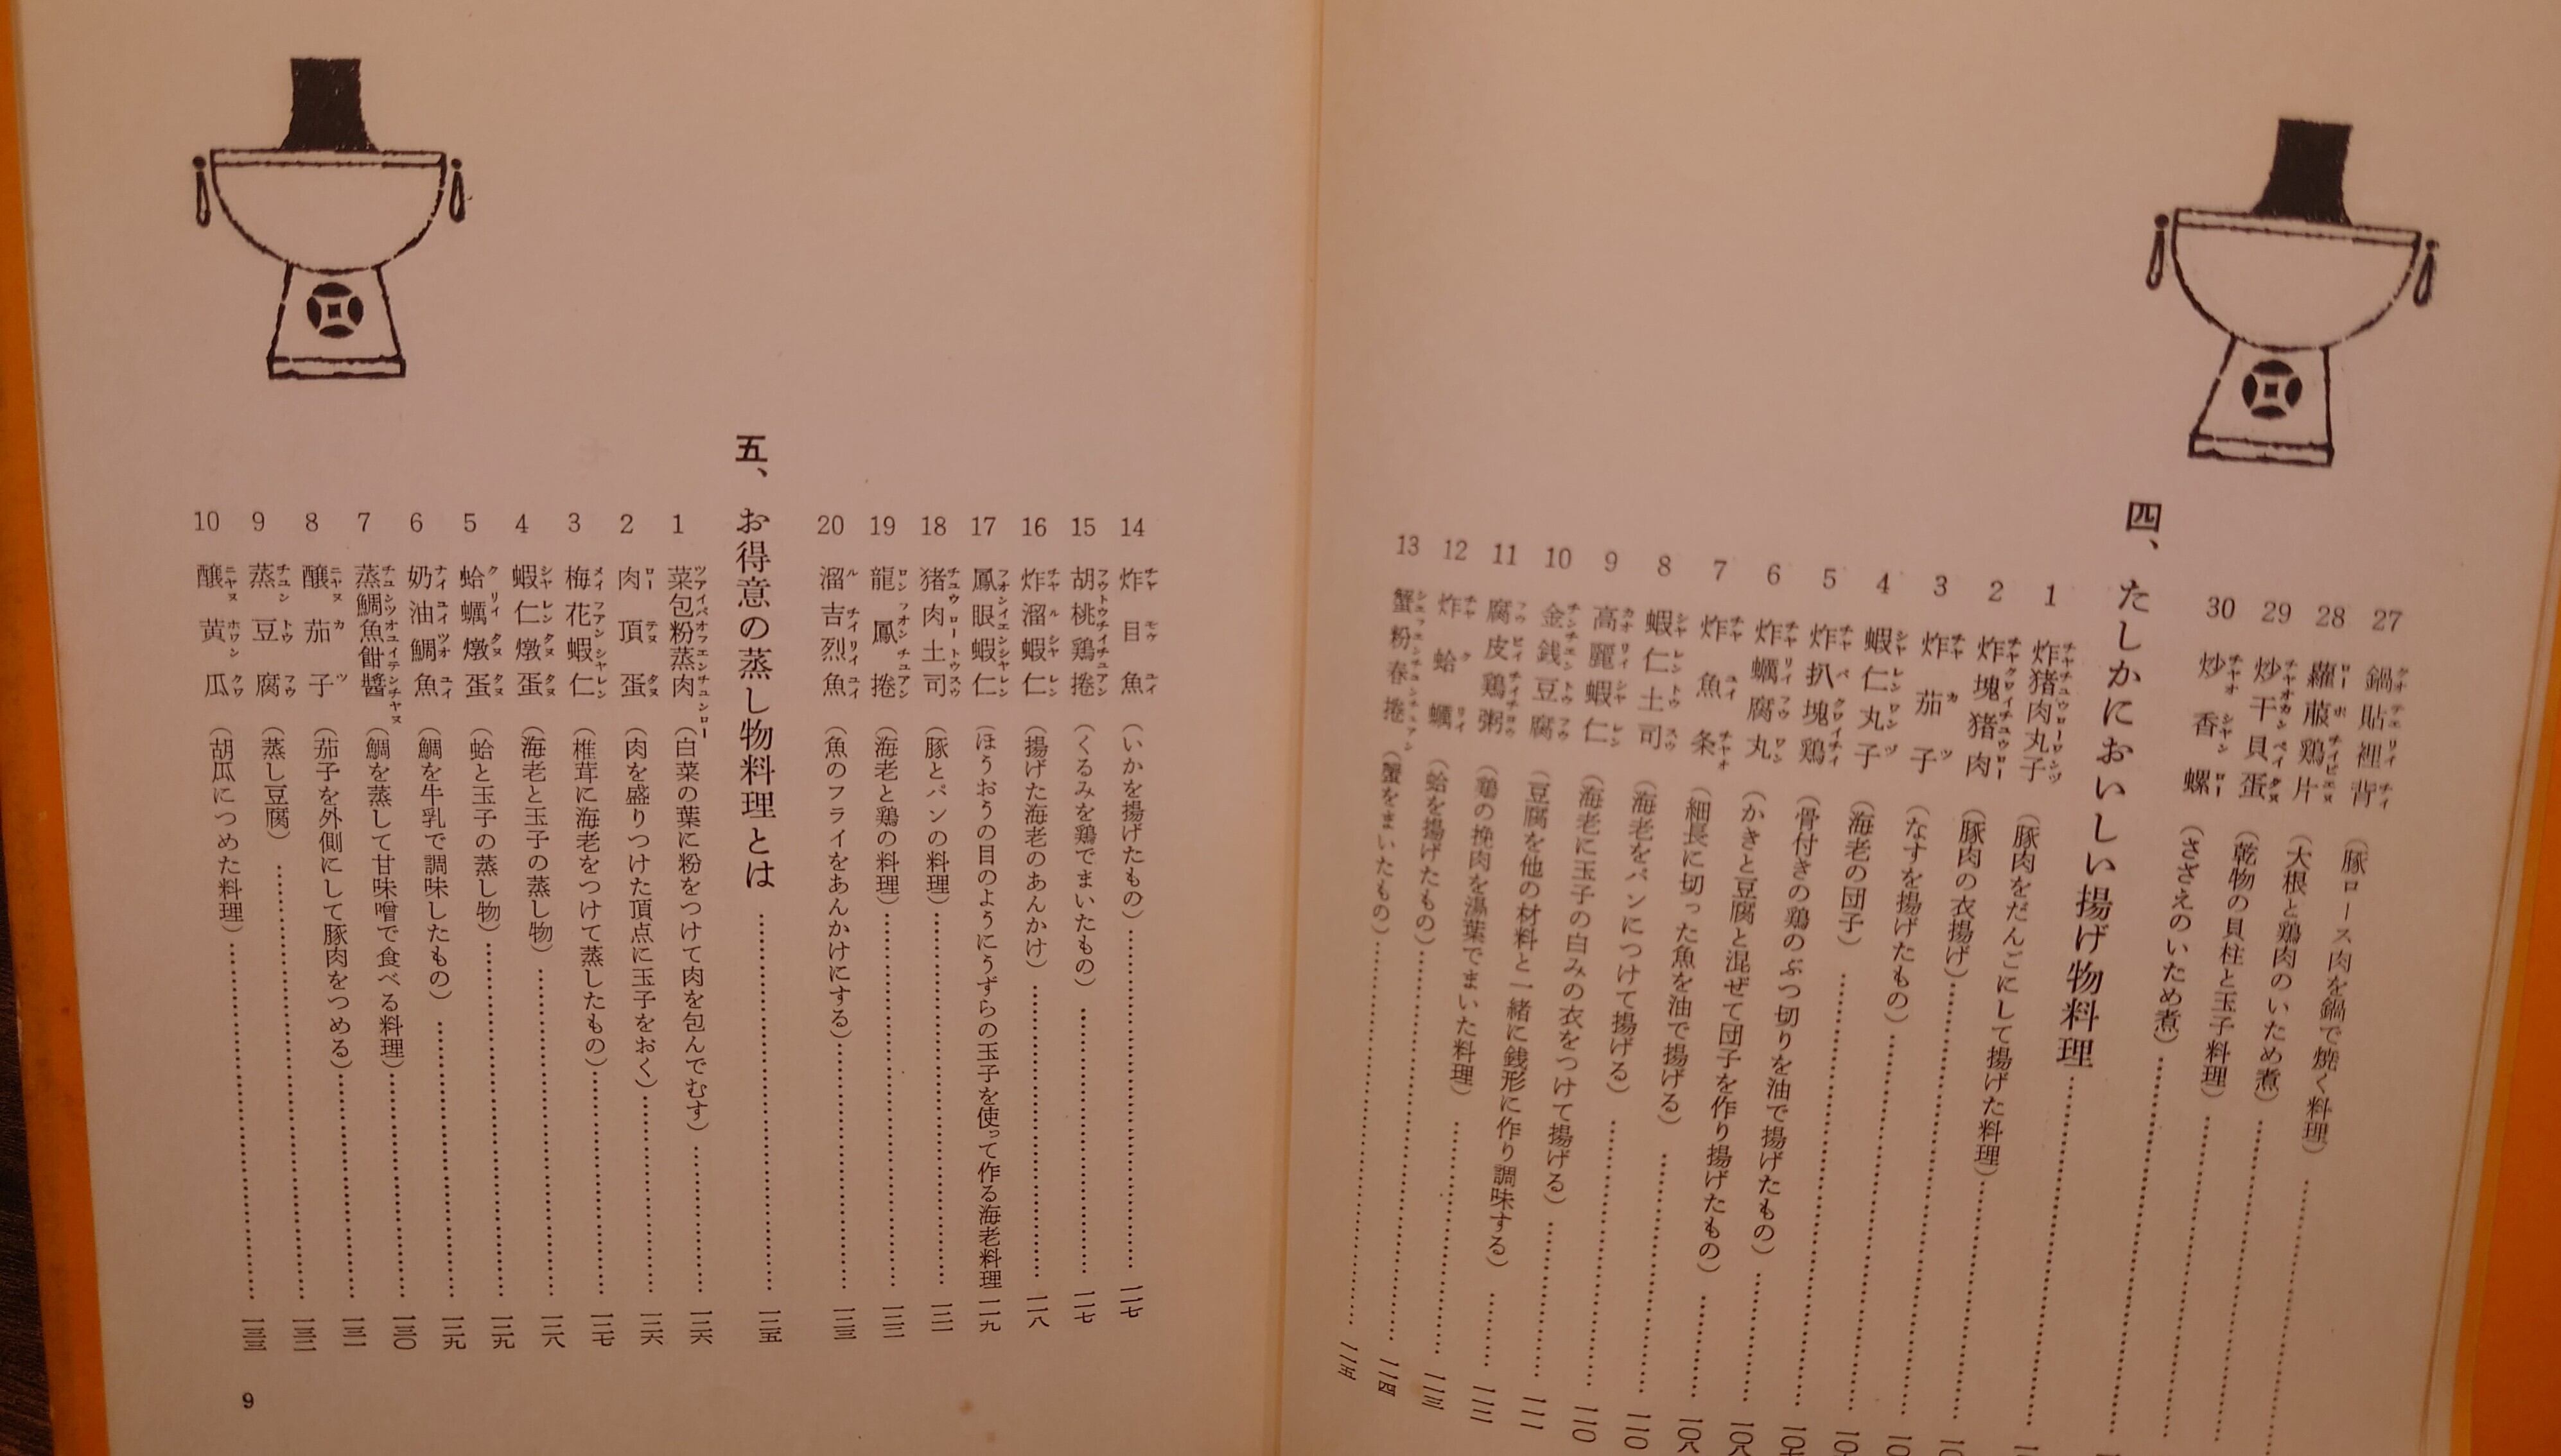 27 鍋貼裡背 (豚ロース肉を鍋で焼く料理)
28 蘿菔鶏片 (大根と鶏肉のいため煮)
29 炒干貝蛋 (乾物の貝柱と玉子料理)
30 炒香螺 (さざえのいため煮)
四、たしかにおいしい揚げ物料理
1 炸猪肉丸子 (豚肉をだんごにして揚げた料理)
2 炸塊猪肉 (豚肉の衣揚げ)
3 炸茄子 (なすを揚げたもの)
4 蝦仁丸子 (海老の団子)
5 炸扒塊鶏 (骨付きの鶏のぶつ切りを油で揚げたもの)
6 炸蠣腐丸 (かきと豆腐と混ぜて団子を作り揚げたもの) 一〇八
7 炸魚条 (細長に切った魚を油で揚げる) 一〇八
8 蝦仁土司 (海老をパンにつけて揚げる) 一一〇
9 高麗蝦仁 (海老に玉子の白みの衣をつけて揚げる) 一一〇
10 金銭豆腐 (豆腐を他の材料と一緒に銭形に作り調味する) 一一一
11 腐皮鶏粥 (鶏の挽肉を湯葉でまいた料理) 一一二
12 炸蛤蠣 (蛤を揚げたもの) 一一三
13 蟹粉春捲 (蟹をまいたもの) 一一五
14 炸目魚 (いかを揚げたもの) 一一七
15 胡桃鶏捲 (くるみを鶏でまいたもの) 一一七
16 炸溜蝦仁 (揚げた海老のあんかけ) 一一八
17 鳳眼蝦仁 (ほうおうの目のようにうずらの玉子を使って作る海老料理 一一九
18 猪肉土司 (豚とパンの料理) 一二一
19 龍鳳捲 (海老と鶏の料理) 一二二
20 溜吉烈魚 (魚のフライをあんかけにする) 一二三
五、お得意の蒸し物料理とは 一二五
1 菜包粉蒸肉 (白菜の葉に粉をつけて肉を包んでむす) 一二六
2 肉頂蛋 (肉を盛りつけた頂点に玉子をおく) 一二六
3 梅花蝦仁 (椎茸に海老をつけて蒸したもの) 一二七
4 蝦仁燉蛋 (海老と玉子の蒸し物) 一二八
5 蛤蠣燉蛋 (蛤と玉子の蒸し物) 一二九
6 奶油鯛魚 (鯛を牛乳で調味したもの) 一二九
7 蒸鯛魚甜醬 (鯛を蒸して甘味噌で食べる料理) 一三〇
8 醸茄子 (茄子を外側にして豚肉をつめる) 一三一
9 蒸豆腐 (蒸し豆腐) 一三二
10 醸黄瓜 (胡瓜につめた料理) 一三三
9